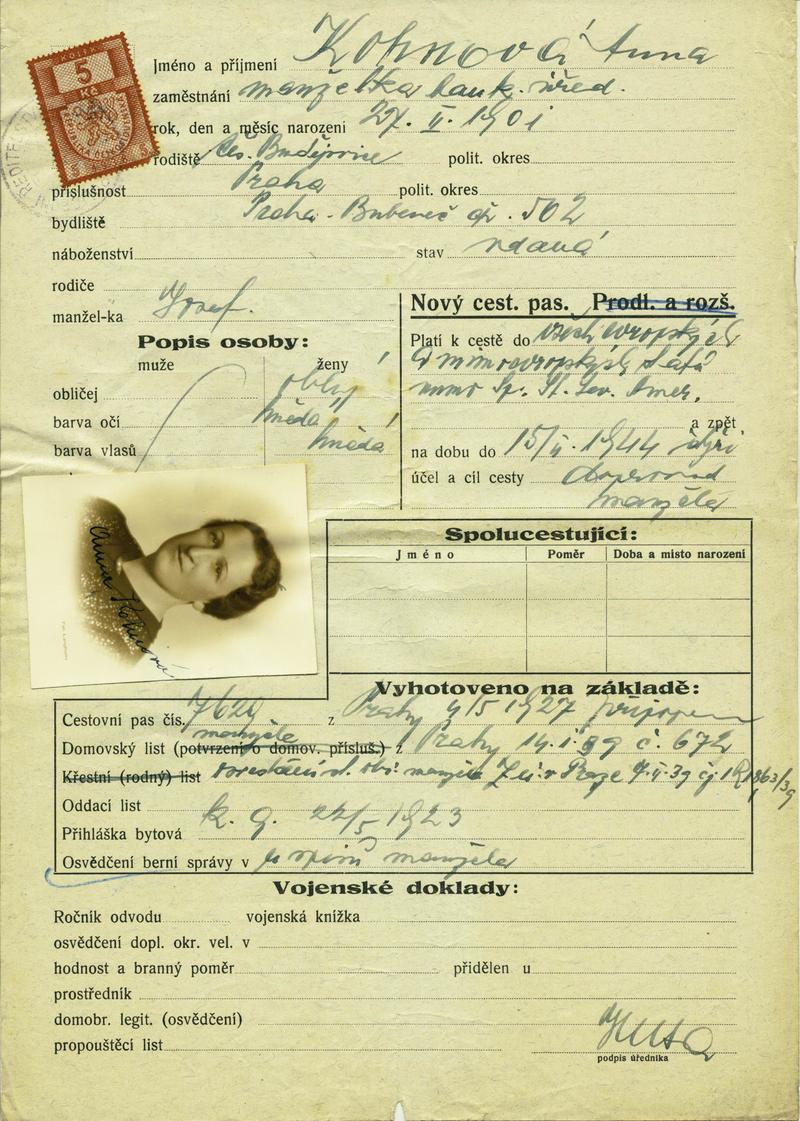 KOLEK
5
Kč
Jméno a příjmení Kohnová Anna
zaměstnání manželka bank. úřed.
rok, den a měsíc narození 27. II. 1901
rodiště Čes. Budějovice polit. okres
příslušnost Praha polit. okres
bydliště Praha - Bubeneč čp. 502
náboženství stav vdaná
rodiče
manžel-ka Josef.
Popis osoby:
muže ženy
obličej oblý
barva očí hnědá
barva vlasů hnědá
Nový cest. pas. Prodl. a rozš.
Platí k cestě do všech evropských
a mimoevropských států
mimo Sp. St. Sev. Amer.
a zpět
na dobu do 15/II. 1944
účel a cíl cesty doprovod
manžela
Anna Kohnová
Spolucestující:
Jméno Poměr Doba a místo narození
Vyhotoveno na základě:
Cestovní pas čís. 7629 z Prahy 4/5 1927 připojen
manžela
Domovský list (potvrzení o domov. přísluš.) z Prahy 14.I.39 č. 672
Křestní (rodný) list osvědčení st. obč. manžela Z.ú. v Praze 7.II.39 čj.
Oddací list k. g. 22/5 1923
Přihláška bytová
Osvědčení berní správy v u spisů manžela
Vojenské doklady:
Ročník odvodu vojenská knížka
osvědčení dopl. okr. vel. v
hodnost a branný poměr přidělen u
prostředník
domobr. legit. (osvědčení)
propouštěcí list
podpis úředníka